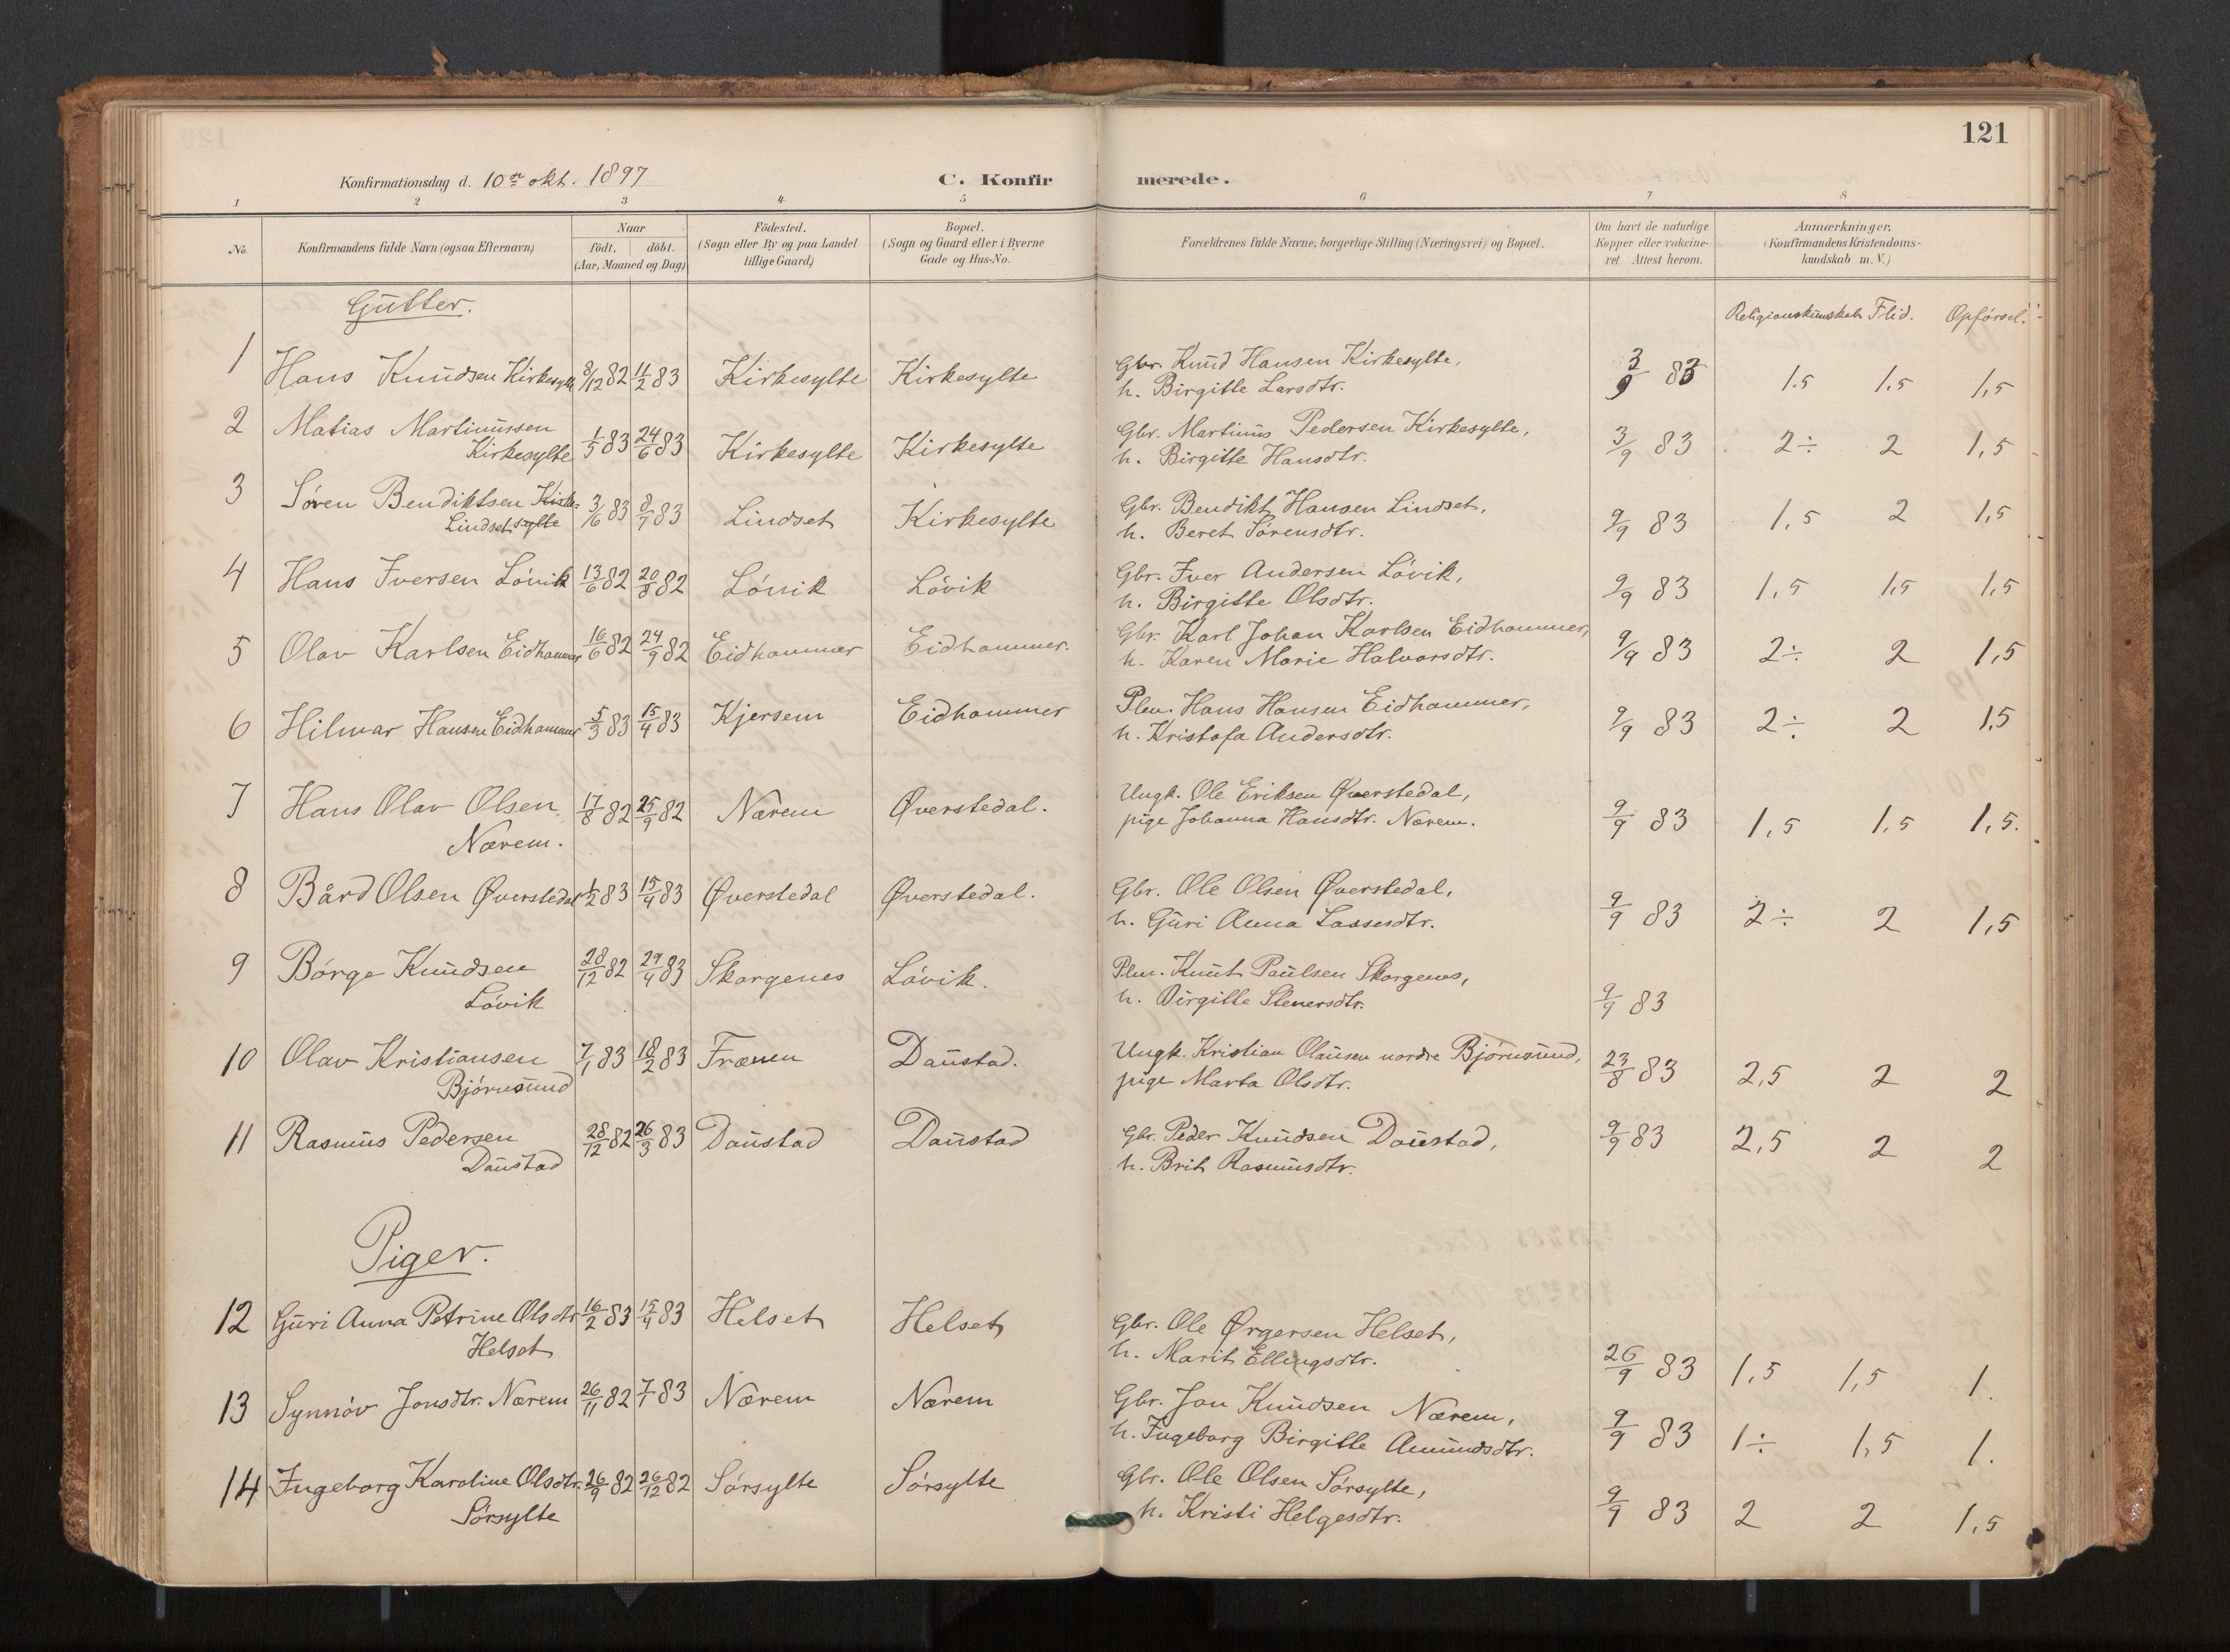 121
Konfirmationsdag d. 10de okt. 1897
C. Konfirmerede.
1 2 3 4 5 6 7 8
No. Konfirmandens fulde Navn (ogsaa Efternavn) Naar født. døbt. (Aar, Maaned og Dag) Fødested. (Sogn eller By og paa Landet tillige Gaard) Bopæl. (Sogn og Gaard eller i Byerne Gade og Hus-No. Forældrenes fulde Navne, borgerlige Stilling (Næringsvei) og Bopæl. Om havt de naturlige Kopper eller vakcineret. Attest herom. Anmærkninger. (Konfirmandens Kristendomskundskab m. V.)
Gutter.
Religionskunskab Flid. Opførsel.
1 Hans Knudsen Kirkesylte 8/12 82 11/2 83 Kirkesylte Kirkesylte Gbr. Knud Hansen Kirkesylte, 3/9 83 1.5 1.5 1,5
h. Birgitte Larsdtr.
2 Matias Martinussen 1/5 83 24/6 83 Kirkesylte Kirkesylte Gbr. Martinus Pedersen Kirkesylte, 3/9 83 2÷ 2 1,5
Kirkesylte h. Birgitte Hansdtr.
3 Søren Bendiktsen Kirke- 3/6 83 8/7 83 Lindset Kirkesylte Gbr. Bendikt Hansen Lindset, 9/9 83 1,5 2 1,5
Lindset sylte h. Beret Sørensdtr.
4 Hans Iversen Løvik 13/6 82 20/8 82 Løvik Løvik Gbr. Iver Andersen Løvik, 9/9 83 1,5 1,5 1,5
h. Birgitte Olsdtr.
5 Olav Karlsen Eidhammer 16/6 82 24/9 82 Eidhammer Eidhammer. Gbr. Karl Johan Karlsen Eidhammer, 9/9 83 2÷ 2 1,5
h. Karen Marie Halvorsdtr.
6 Hilmar Hansen Eidhammer 5/3 83 15/4 83 Kjersem Eidhammer Plm. Hans Hansen Eidhammer, 9/9 83 2÷ 2 1,5
h. Kristofa Andersdtr.
7 Hans Olav Olsen 17/8 82 25/9 82 Nærem Øverstedal. Ungk. Ole Eriksen Øverstedal, 9/9 83 1,5 1,5 1,5.
Nærem. pige Johanna Hansdtr. Nærem.
8 Bård Olsen Øverstedal 1/2 83 15/4 83 Øverstedal Øverstedal. Gbr. Ole Olsen Øverstedal, 9/9 83 2÷ 2 1,5
h. Guri Anna Lassesdtr.
9 Børge Knudsen 28/12 82 29/4 83 Skorgenes Løvik. Plm. Knut Paulsen Skorgenes, 9/9 83
Løvik h. Birgitte Stenersdtr.
10 Olav Kristiansen 7/1 83 18/2 83 Frænen Daustad. Ungk. Kristian Olausen nordre Bjørnsund, 23/8 83 2,5 2 2
Bjørnsund pige Marta Olsdtr.
11 Rasmus Pedersen 28/12 82 26/3 83 Daustad Daustad Gbr. Peder Knudsen Daustad, 9/9 83 2,5 2 2
Daustad h. Brit Rasmusdtr.
Piger.
12 Guri Anna Petrine Olsdtr 16/2 83 15/4 83 Helset Helset Gbr. Ole Ørgersen Helset, 26/9 83 1,5 1,5 1.
Helset h. Marit Ellingsdtr.
13 Synnøv Jonsdtr. Nærem 26/11 82 7/1 83 Nærem Nærem Gbr. Jon Knudsen Nærem, 9/9 83 1÷ 1,5 1.
h. Ingeborg Birgitte Amundsdtr.
14 Ingeborg Karoline Olsdtr. 26/9 82 26/12 82 Sørsylte Sørsylte Gbr. Ole Olsen Sørsylte, 9/9 83 2 2 1,5
Sørsylte h. Kristi Helgesdtr.